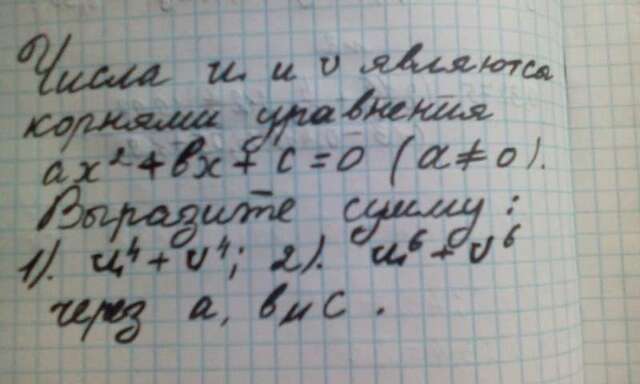 Числа u и v являются
корнями уравнения
ax² + bx + c = 0 (a ≠ 0).
Выразите сумму:
1). u⁴ + v⁴; 2). u⁶ + v⁶
через a, b и c.